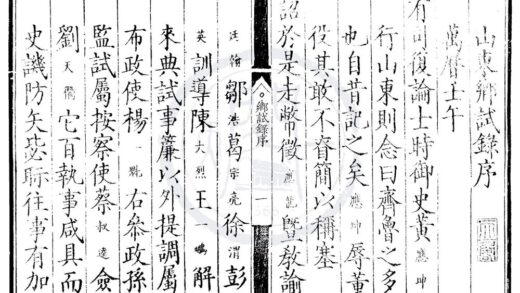 山東鄉試錄序
萬曆壬午
有司復論上時御史黃應坤
行山東則念曰齊魯之多
也自昔記之矣應坤辱董
役其敢不眘簡以稱塞
詔於是走幣徵應龍暨教諭
鄉試錄序 一
汪鄒浩葛宗亮徐渭彭
英訓導陳大烈王一解
來典試事簾以外提調屬
布政使楊一魁右參政孫
監試屬按察使蔡叔逵僉
劉天它百執事咸具而
史譏防矢毖眎往事有加